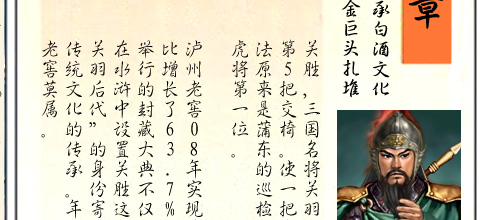 章
承白酒文化
金巨头扎堆
关胜,三国名将关羽
第5把交椅。使一把
法原来是蒲东的巡检
虎将第一位。
泸州老窖08年实现
比增长了63.7%
举行的封藏大典不仅
在水浒中设置关胜这
关羽后代”的身份寄
传统文化的传承。年
老窖莫属。